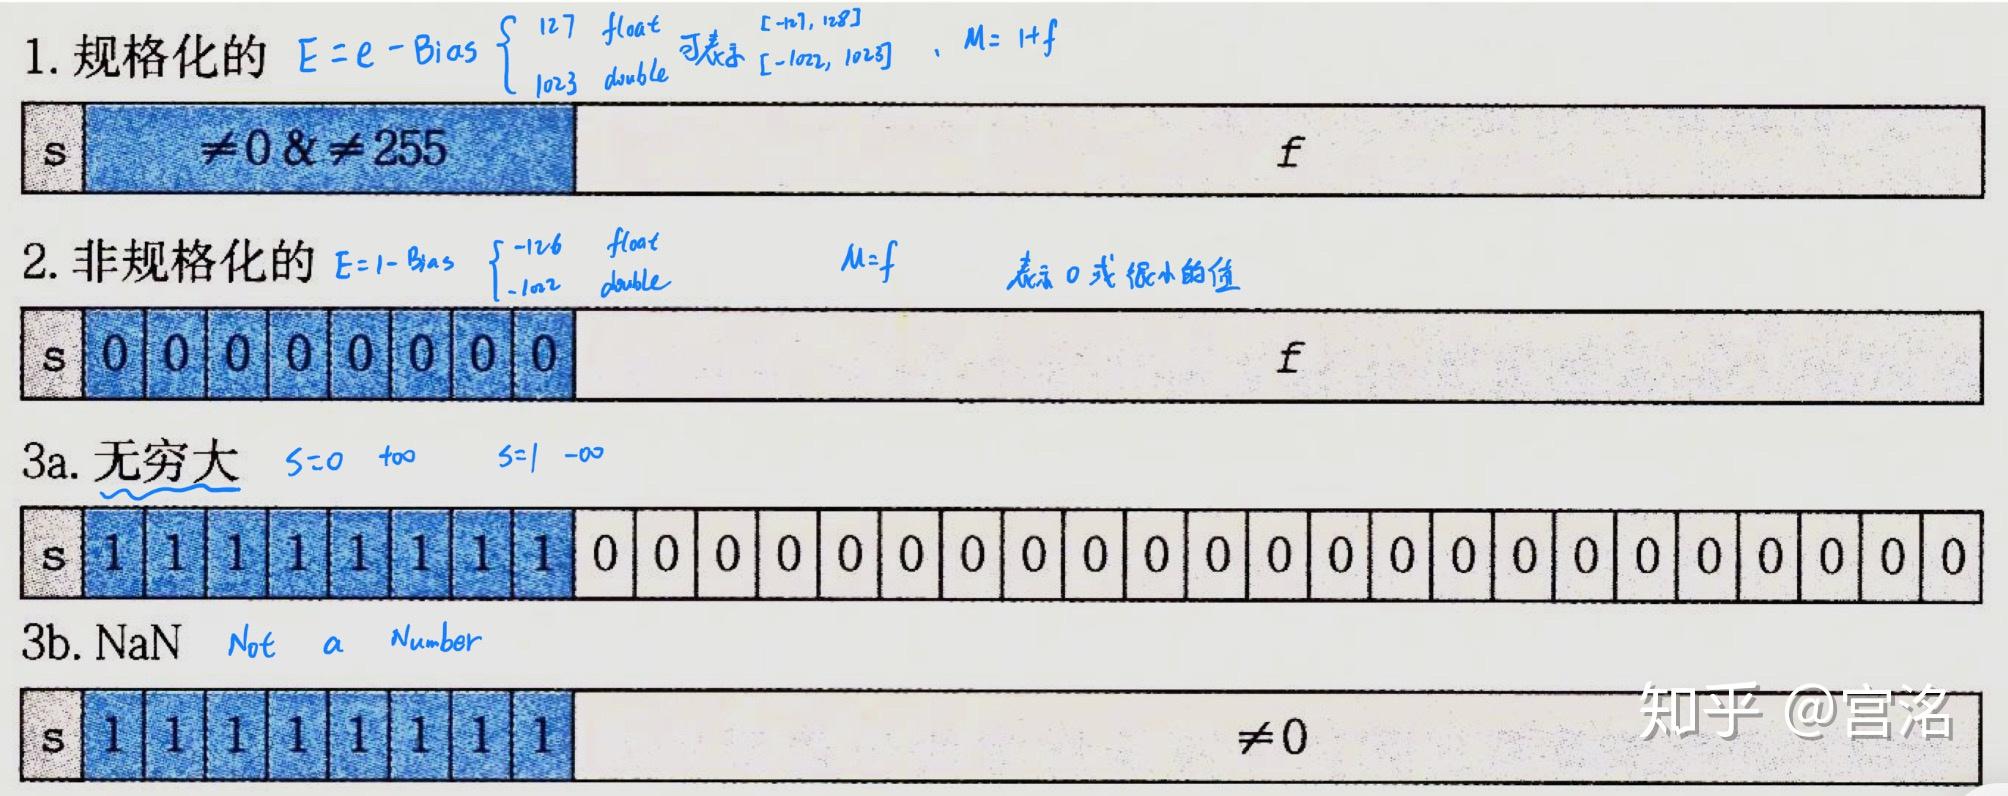 1. 规格化的 E = e - Bias { 127 float 可表示 [-127, 128] 、 M = 1+f
1023 double [-1022, 1023]
s ≠0 & ≠255 f
2. 非规格化的 E = 1 - Bias { -126 float M = f 表示 0 或 很小的值
-1022 double
s 0 0 0 0 0 0 0 0 f
3a. 无穷大 s=0 +∞ s=1 -∞
s 1 1 1 1 1 1 1 1 0 0 0 0 0 0 0 0 0 0 0 0 0 0 0 0 0 0 0 0 0 0 0
3b. NaN Not a Number
s 1 1 1 1 1 1 1 1 ≠0
知乎 @宫洺